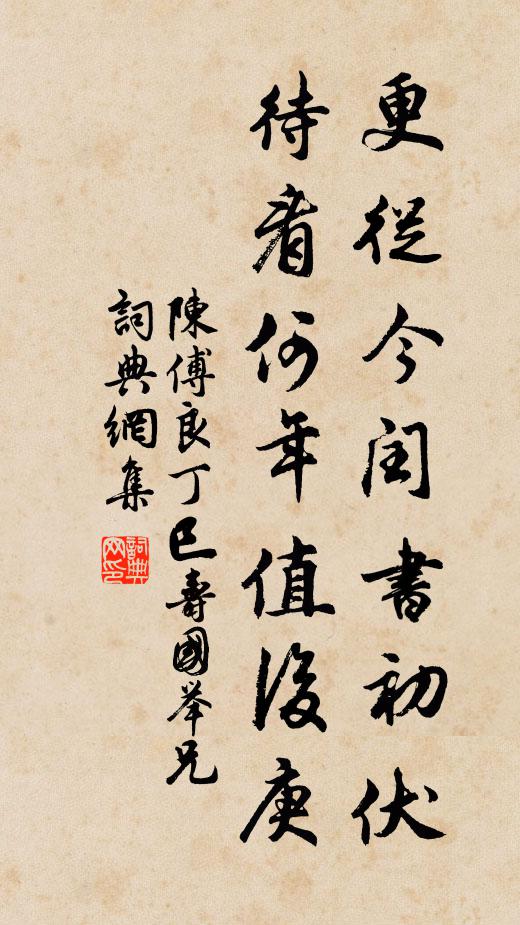 更從今閏書初伏
待看何年值後庚
陳傅良丁巳壽國举兄
詞典網集
詞典网印